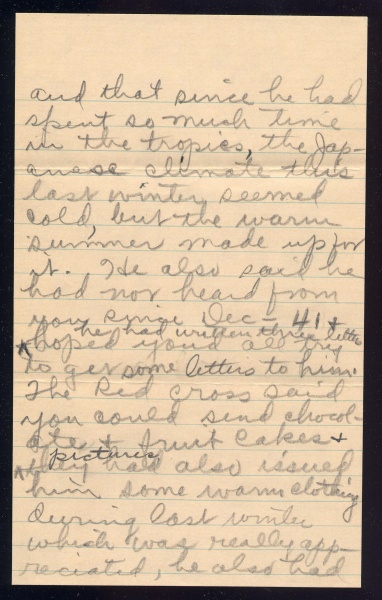 and that since he had
spent so much time
in the tropics, the Jap-
anese climate this
last winter seemed
cold, but the warm
summer made up for
it. He also said he
had not heard from
you since Dec - 41 +
he had written three letters
hoped you'd all try
to get some letters to him.
The Red Cross said
you could send chocol-
ate + fruit cakes +
pictures
they had also issued
him some warm clothing
during last winter
which was really app-
reciated, he also had